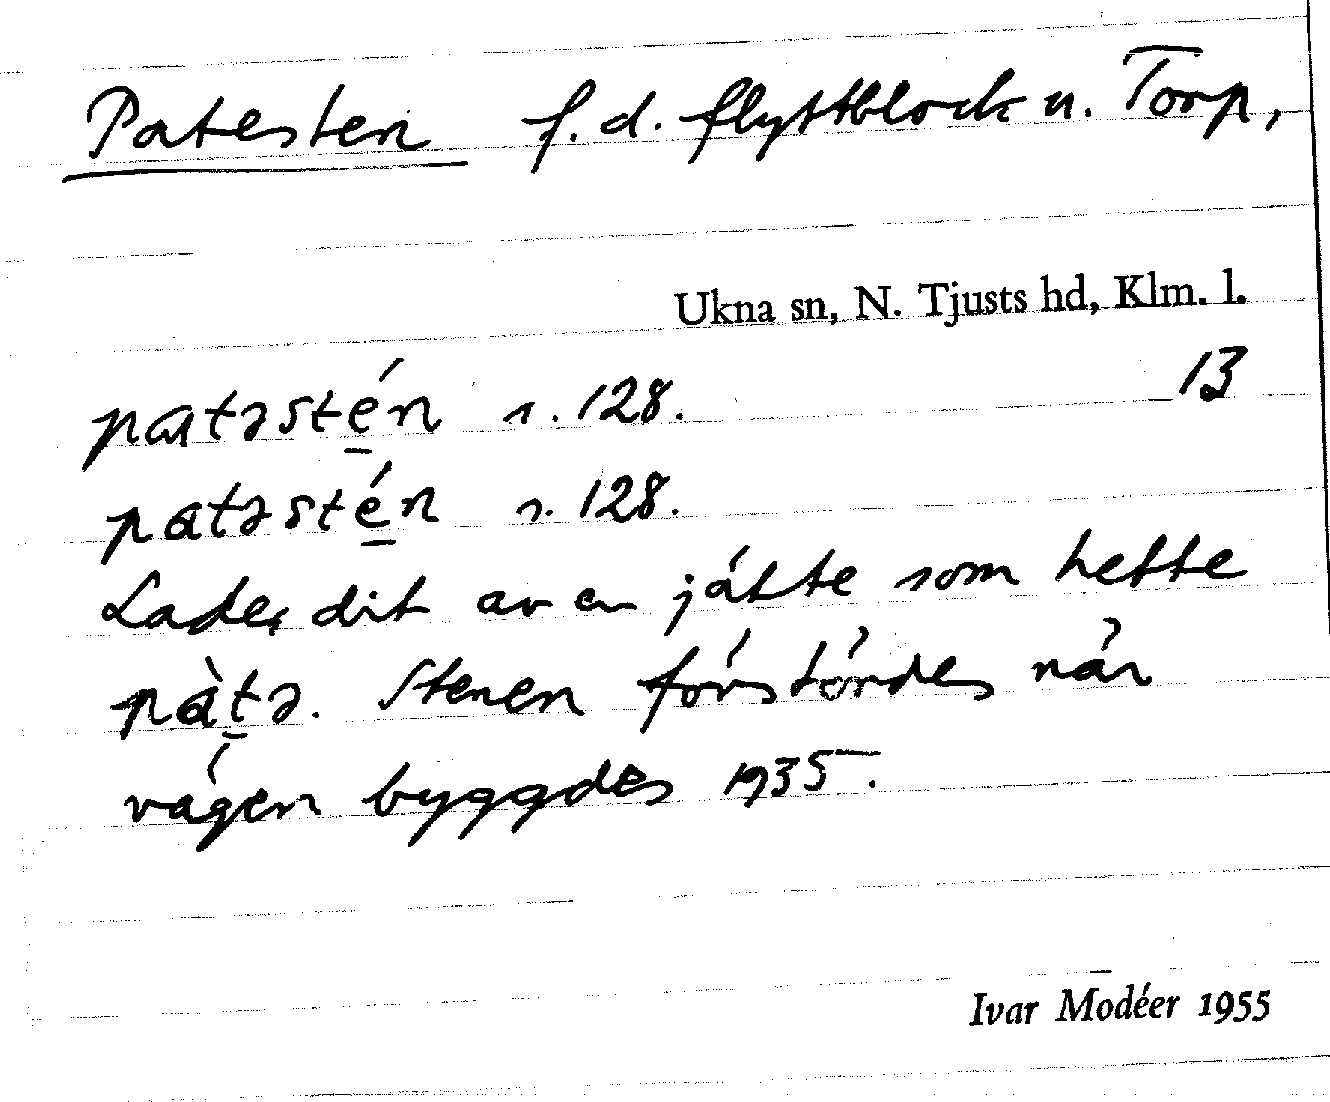 Patesten f.d. flyttblock n. Torp,
Ukna sn, N. Tjusts hd, Klm. l.
13
patəsté̲n s. 128.
patəsté̲n s. 128.
Lades dit av en jätte som hette
pàt̲ə. Stenen förstördes när
vägen byggdes 1935.
Ivar Modéer 1955